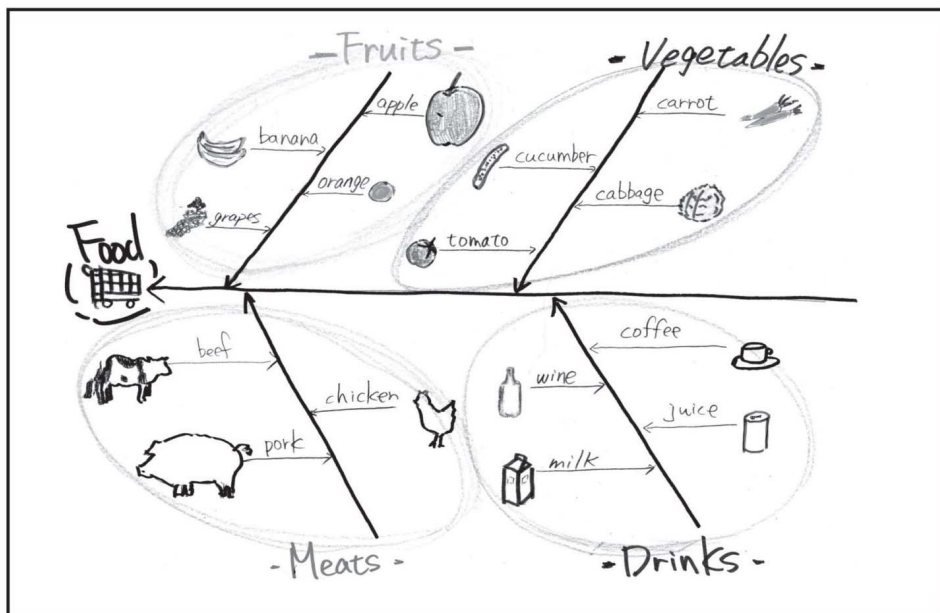 -Fruits-
apple
banana
orange
grapes
-Vegetables-
carrot
cucumber
cabbage
tomato
Food
beef
chicken
pork
-Meats-
coffee
wine
juice
milk
-Drinks-